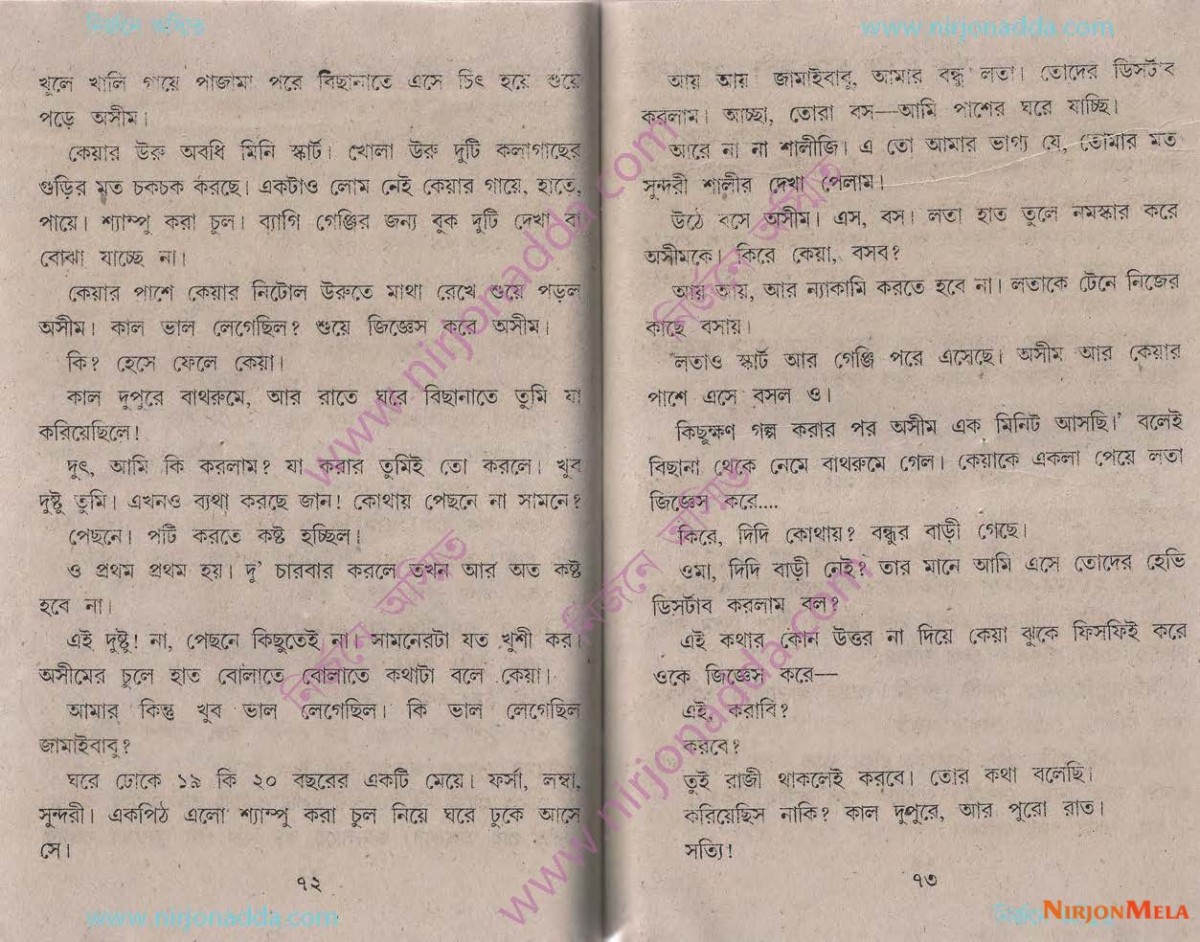 www.nirjonadda.com
খুলে খালি গায়ে পাজামা পরে বিছানাতে এসে চিৎ হয়ে শুয়ে
পড়ে অসীম।
কেয়ার উরু অবধি মিনি স্কার্ট। খোলা উরু দুটি কলাগাছের
গুড়ির মত চকচক করছে। একটাও লোম নেই কেয়ার গায়ে, হাতে,
পায়ে। শ্যাম্পু করা চুল। ব্যাগি গেঞ্জির জন্য বুক দুটি দেখা বা
বোঝা যাচ্ছে না।
কেয়ার পাশে কেয়ার নিটোল উরুতে মাথা রেখে শুয়ে পড়ল
অসীম। কাল ভাল লেগেছিল? শুয়ে জিজ্ঞেস করে অসীম।
কি? হেসে ফেলে কেয়া।
কাল দুপুরে বাথরুমে, আর রাতে ঘরে বিছানাতে তুমি যা
করিয়েছিলে!
দুৎ, আমি কি করলাম? যা করার তুমিই তো করলে। খুব
দুষ্টু তুমি। এখনও ব্যথা করছে জান! কোথায় পেছনে না সামনে?
পেছনে। পটি করতে কষ্ট হচ্ছিল!
ও প্রথম প্রথম হয়। দু' চারবার করলে তখন আর অত কষ্ট
হবে না।
এই দুষ্টু! না, পেছনে কিছুতেই না। সামনেরটা যত খুশী কর।
অসীমের চুলে হাত বোলাতে বোলাতে কথাটা বলে কেয়া।
আমার কিন্তু খুব ভাল লেগেছিল। কি ভাল লেগেছিল
জামাইবাবু?
ঘরে ঢোকে ১৯ কি ২০ বছরের একটি মেয়ে। ফর্সা, লম্বা,
সুন্দরী। একপিঠ এলো শ্যাম্পু করা চুল নিয়ে ঘরে ঢুকে আসে
সে।
৭২
www.nirjonadda.com
আয় আয় জামাইবাবু, আমার বন্ধু লতা। তোদের ডিসটাব
করলাম। আচ্ছা, তোরা বস—আমি পাশের ঘরে যাচ্ছি।
আরে না না শালীজি। এ তো আমার ভাগ্য যে, তোমার মত
সুন্দরী শালীর দেখা পেলাম।
উঠে বসে অসীম। এস, বস। লতা হাত তুলে নমস্কার করে
অসীমকে। কিরে কেয়া, বসব?
আয় আয়, আর ন্যাকামি করতে হবে না। লতাকে টেনে নিজের
কাছে বসায়।
লতাও স্কার্ট আর গেঞ্জি পরে এসেছে। অসীম আর কেয়ার
পাশে এসে বসল ও।
কিছুক্ষণ গল্প করার পর অসীম এক মিনিট আসছি।' বলেই
বিছানা থেকে নেমে বাথরুমে গেল। কেয়াকে একলা পেয়ে লতা
জিজ্ঞেস করে....
কিরে, দিদি কোথায়? বন্ধুর বাড়ী গেছে।
ওমা, দিদি বাড়ী নেই? তার মানে আমি এসে তোদের হেভি
ডিসটাব করলাম বল?
এই কথার কোন উত্তর না দিয়ে কেয়া ঝুকে ফিসফিই করে
ওকে জিজ্ঞেস করে—
এই, করাবি?
করবে?
তুই রাজী থাকলেই করবে। তোর কথা বলেছি।
করিয়েছিস নাকি? কাল দুপুরে, আর পুরো রাত।
সত্যি!
৭৩
www.nirjonadda.com
নির্জনে অসিত
www.nirjonadda.com
নির্জনে অসিত
নির্জনে অসিত
www.nirjonadda.com
NIRJONMELA